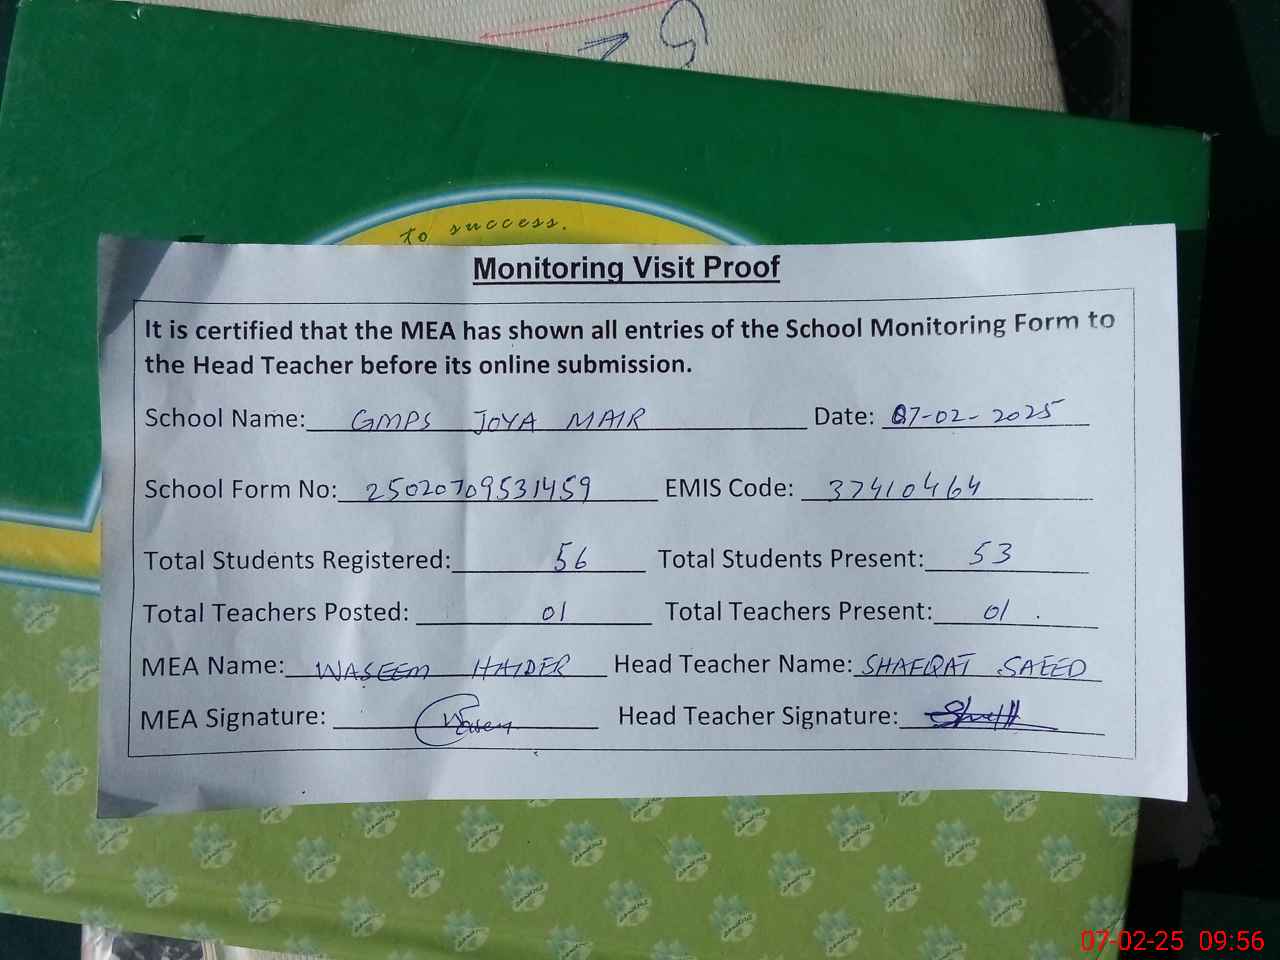 to success.
Monitoring Visit Proof
It is certified that the MEA has shown all entries of the School Monitoring Form to
the Head Teacher before its online submission.
School Name: GMPS JOYA MAIR Date: 07-02-2025
School Form No: 25020709531459 EMIS Code: 37410464
Total Students Registered: 56 Total Students Present: 53
Total Teachers Posted: 01 Total Teachers Present: 01.
MEA Name: WASEEM HAIDER Head Teacher Name: SHAFQAT SAEED
MEA Signature: Waseem Head Teacher Signature:
07-02-25 09:56